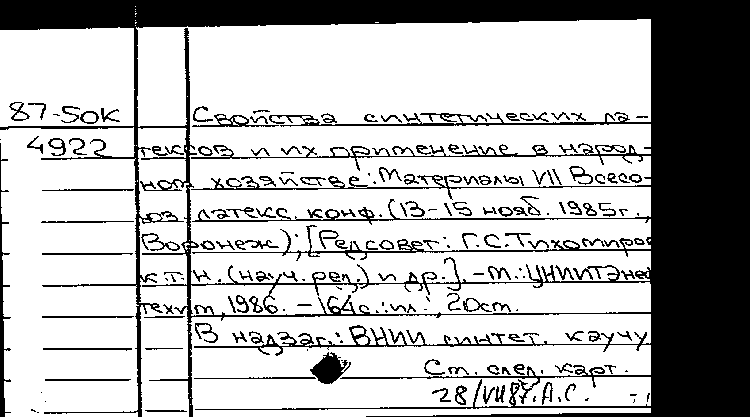 87-5ОК Свойства синтетических ла-
4922 тексов и их применение в народ-
ном хозяйстве: Материалы VII Всесо-
юз. латекс. конф. (13-15 нояб. 1985г.,
Воронеж); [Редсовет: Г.С. Тихомиров
к.т.н. (науч. ред.) и др.]. - М.: ЦНИИТЭнеф
техим, 1986. - 164с.: ил.; 20см.
В надзаг.: ВНИИ синтет. каучу
См. след. карт.
28/VII87. А.С.